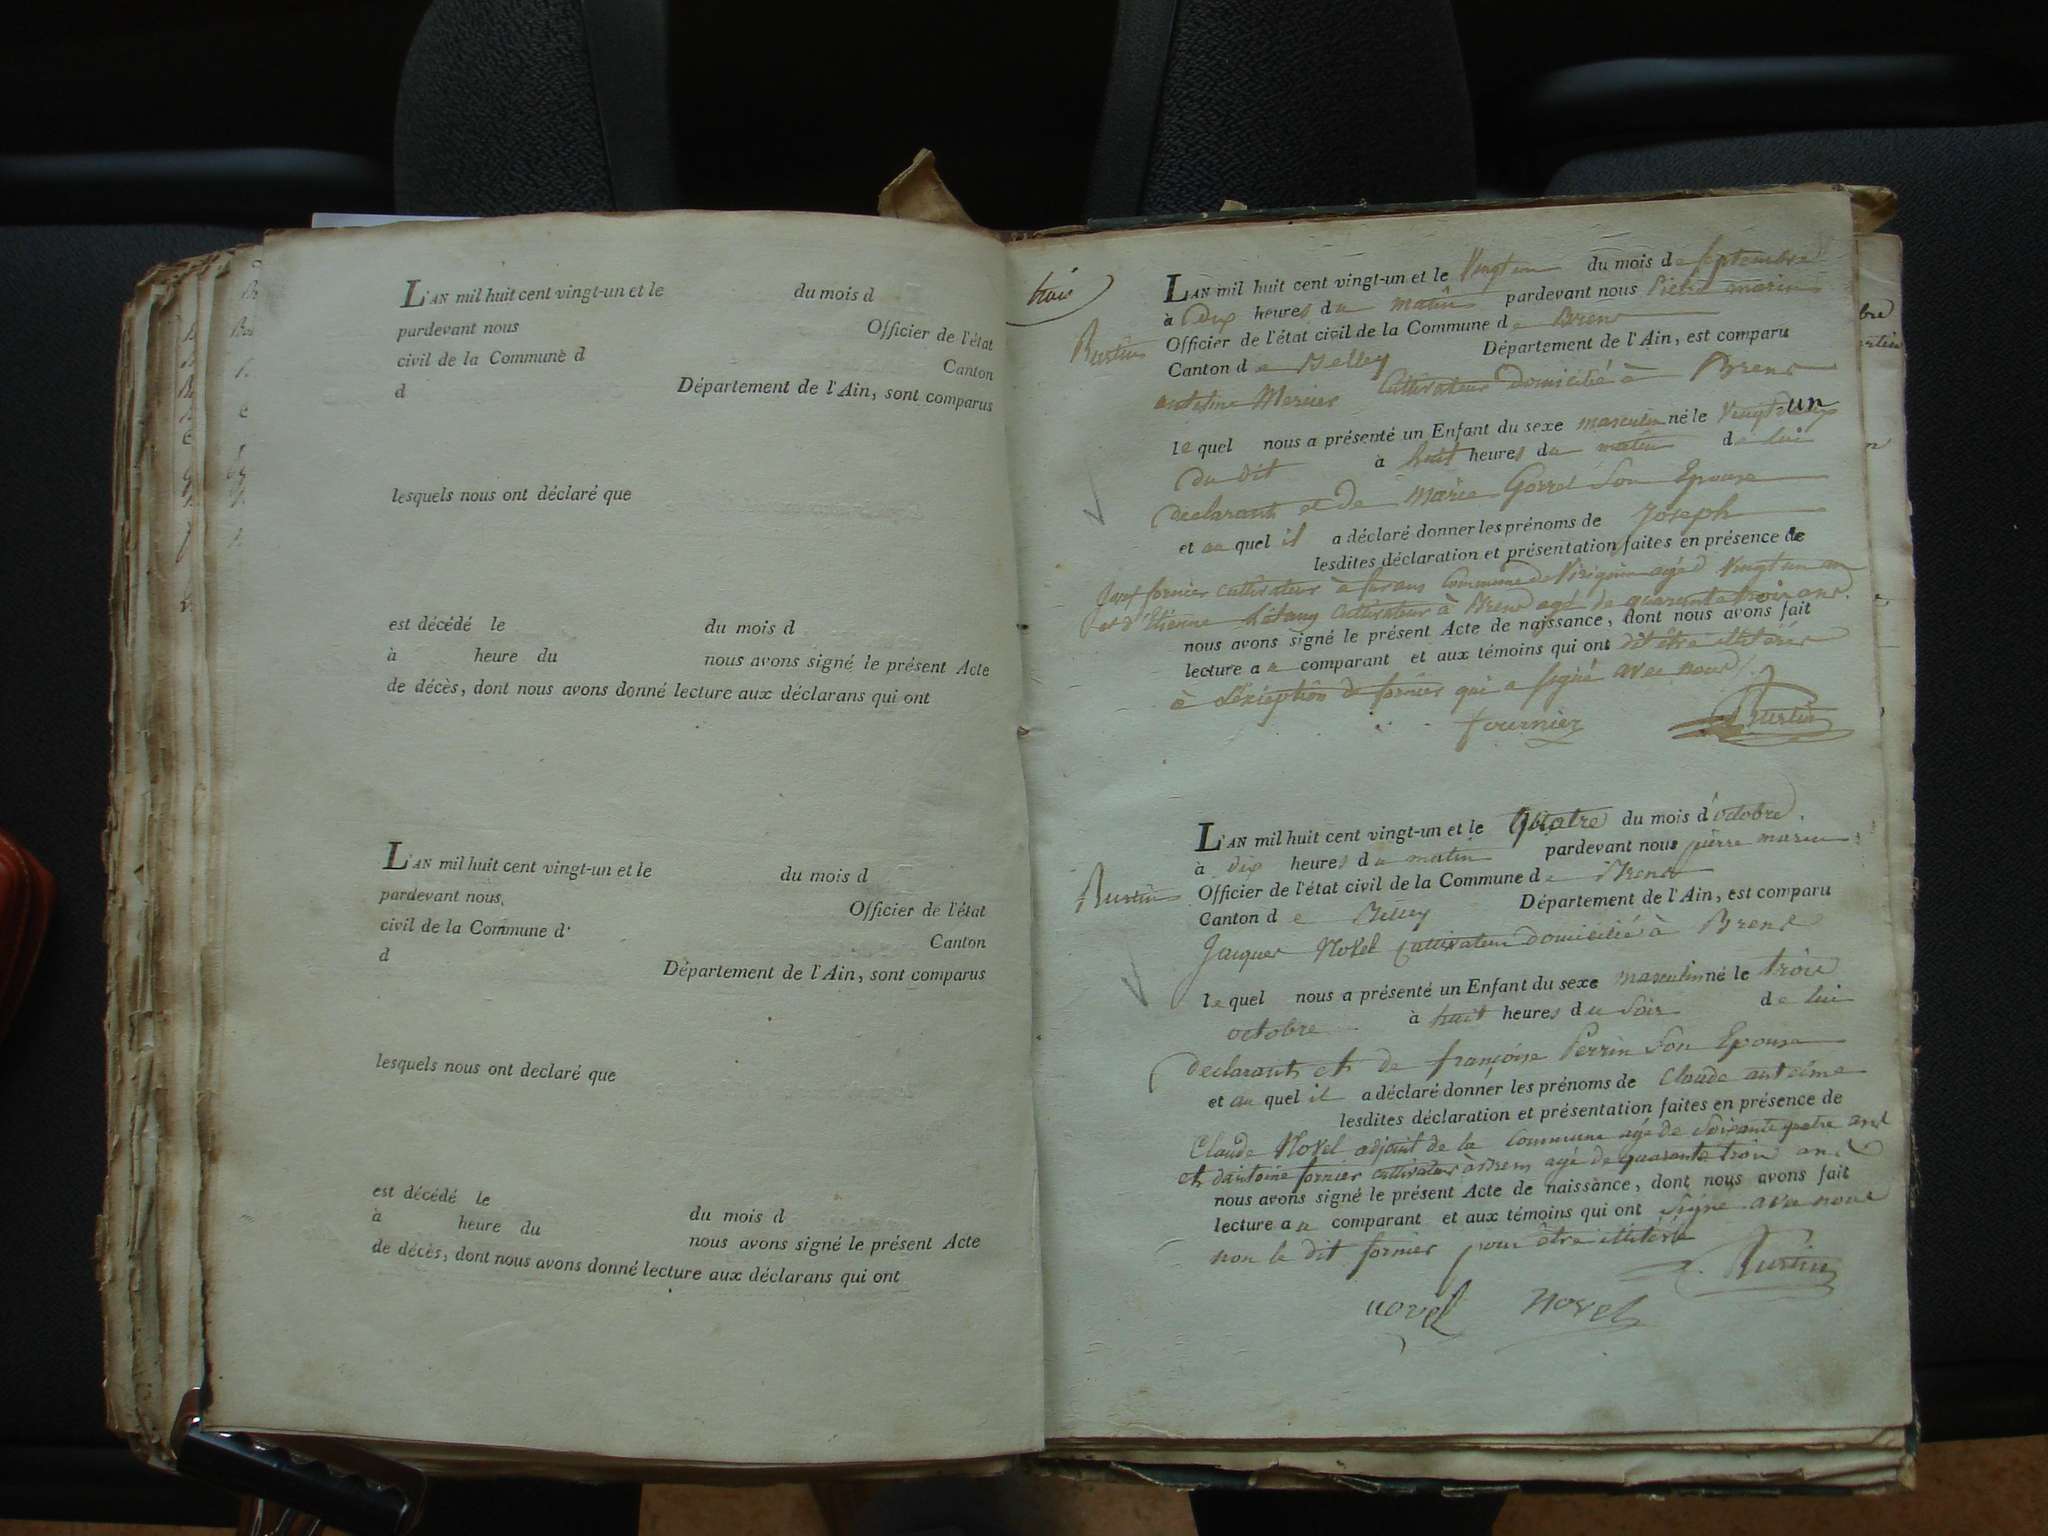 L'AN mil huit cent vingt-un et le du mois d
pardevant nous Officier de l'état
civil de la Commune d Canton
d Département de l'Ain, sont comparus
lesquels nous ont déclaré que
est décédé le du mois d
à heure du nous avons signé le présent Acte
de décès, dont nous avons donné lecture aux déclarans qui ont
L'AN mil huit cent vingt-un et le du mois d
pardevant nous Officier de l'état
civil de la Commune d Canton
d Département de l'Ain, sont comparus
lesquels nous ont declaré que
est décédé le du mois d
à heure du nous avons signé le présent Acte
de décès, dont nous avons donné lecture aux déclarans qui ont
trois
L'AN mil huit cent vingt-un et le Vingt un du mois de septembre
à dix heures du matin pardevant nous marin
Rustin
Officier de l'état civil de la Commune de Brens
Canton de Belley Département de l'Ain, est comparu
antelme Mercier Cultivateur domicilié à Brens
lequel nous a présenté un Enfant du sexe masculin né le Vingt un
du dit à huit heures du matin de lui
declarant et de marie Gorrel Son Epouse
et au quel il a déclaré donner les prénoms de Joseph
lesdites déclaration et présentation faites en présence de
fornier cultivateur à Commune de Virignin agé d Vingt un an
et d'Etienne Cultivateur à Brens agé de quarante trois ans.
nous avons signé le présent Acte de naissance, dont nous avons fait
lecture au comparant et aux témoins qui ont dit être illitérés
à L'exception de fornier qui a signé avec nous
fournier Rustin
L'AN mil huit cent vingt-un et le Quatre du mois d'octobre
à dix heures du matin pardevant nous pierre marin
Rustin
Officier de l'état civil de la Commune de Brens
Canton de Belley Département de l'Ain, est comparu
Jacques Novel Cultivateur domicilié à Brens
lequel nous a présenté un Enfant du sexe masculin né le trois
octobre à huit heures du Soir de lui
declarant et de françoise Perrin Son Epouse
et au quel il a déclaré donner les prénoms de Claude antelme
lesdites déclaration et présentation faites en présence de
Claude Novel adjoint de la Commune agé de Soixante quatre ans
et d'antoine fornier cultivateur à Brens agé de quarante trois ans
nous avons signé le présent Acte de naissance, dont nous avons fait
lecture au comparant et aux témoins qui ont Signé avec nous
non le dit fornier pour être illitéré
Rustin
novel Novel